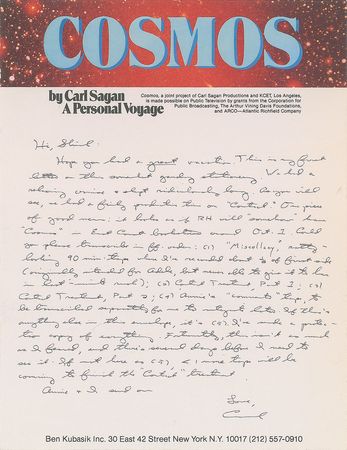 COSMOS
by Carl Sagan
A Personal Voyage
Cosmos, a joint project of Carl Sagan Productions and KCET, Los Angeles,
is made possible on Public Television by grants from the Corporation for
Public Broadcasting, The Arthur Vining Davis Foundations,
and ARCO—Atlantic Richfield Company
Hi, Shirl:
Hope you had a great vacation. This is my first
letter on this somewhat gaudy stationery. We had a
relaxing and slept ridiculously long. As you will
see, we had a fairly productive time on "Contact". One piece
of good news: it looks as if RH will "somehow" have
"Cosmos" in East Coast bookstores around Oct. 1. Could
you please transcribe in order: (1) "Miscellany," nutty-
looking 90 min tape which I've recorded about ½ of first side
(originally intended for Adele, but never able to give it to her
in last-minute rush); (2) Contact Treatment, Part I; (3)
Contact Treatment, Part 2; (4) Annie's "comments" tape, to
be transcribed separately for me to integrate later. If there's
anything else in this envelope, it's (5). I've made a
copy of everything. Fortunately, this isn't as much
as I feared, and there's several days before I need to
see it. If not here as (5), 1 more tape will be
coming to finish the "Contact" treatment.
Annie & I send our
Love,
Carl
Ben Kubasik Inc. 30 East 42 Street New York N.Y. 10017 (212) 557-0910